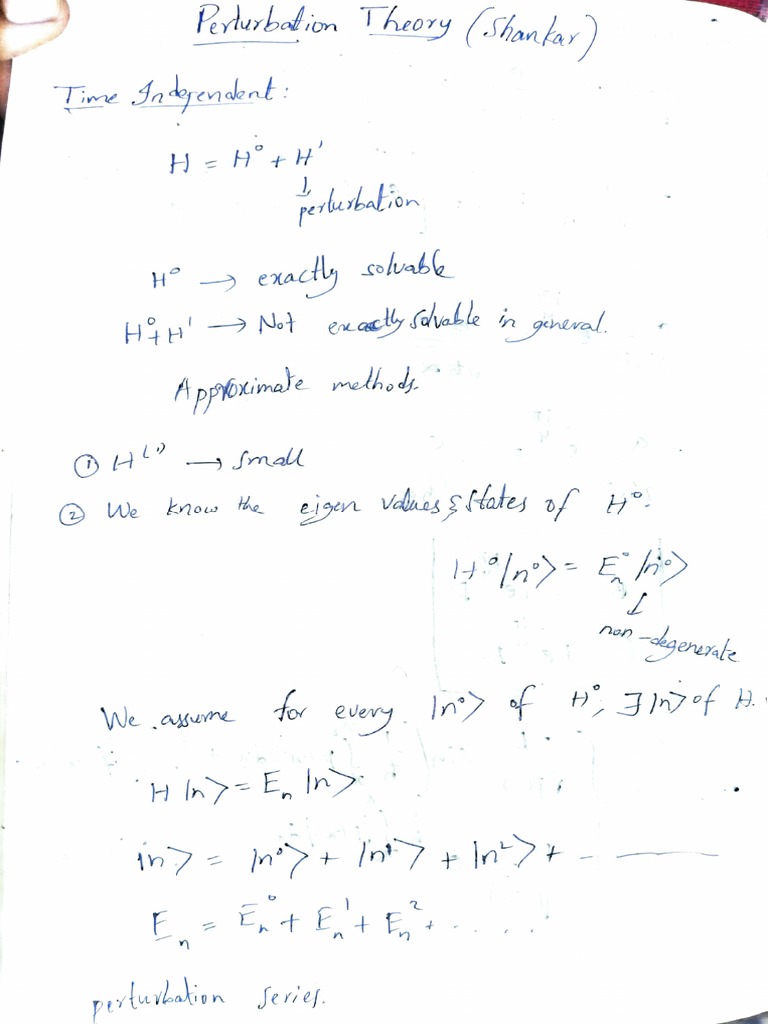 Perturbation Theory (Shankar)
Time Independent:
H = H⁰ + H'
↓
perturbation
H⁰ → exactly solvable
H⁰+H' → Not exactly solvable in general.
Approximate methods.
① H⁽¹⁾ → small
② We know the eigen values & states of H⁰.
H⁰|n⁰> = Eₙ⁰|n⁰>
↓
non-degenerate
We assume for every |n⁰> of H⁰, ∃ |n> of H.
H|n> = Eₙ|n>
|n> = |n⁰> + |n¹> + |n²> + - ———
Eₙ = Eₙ⁰ + Eₙ¹ + Eₙ² + . . . . .
perturbation series.